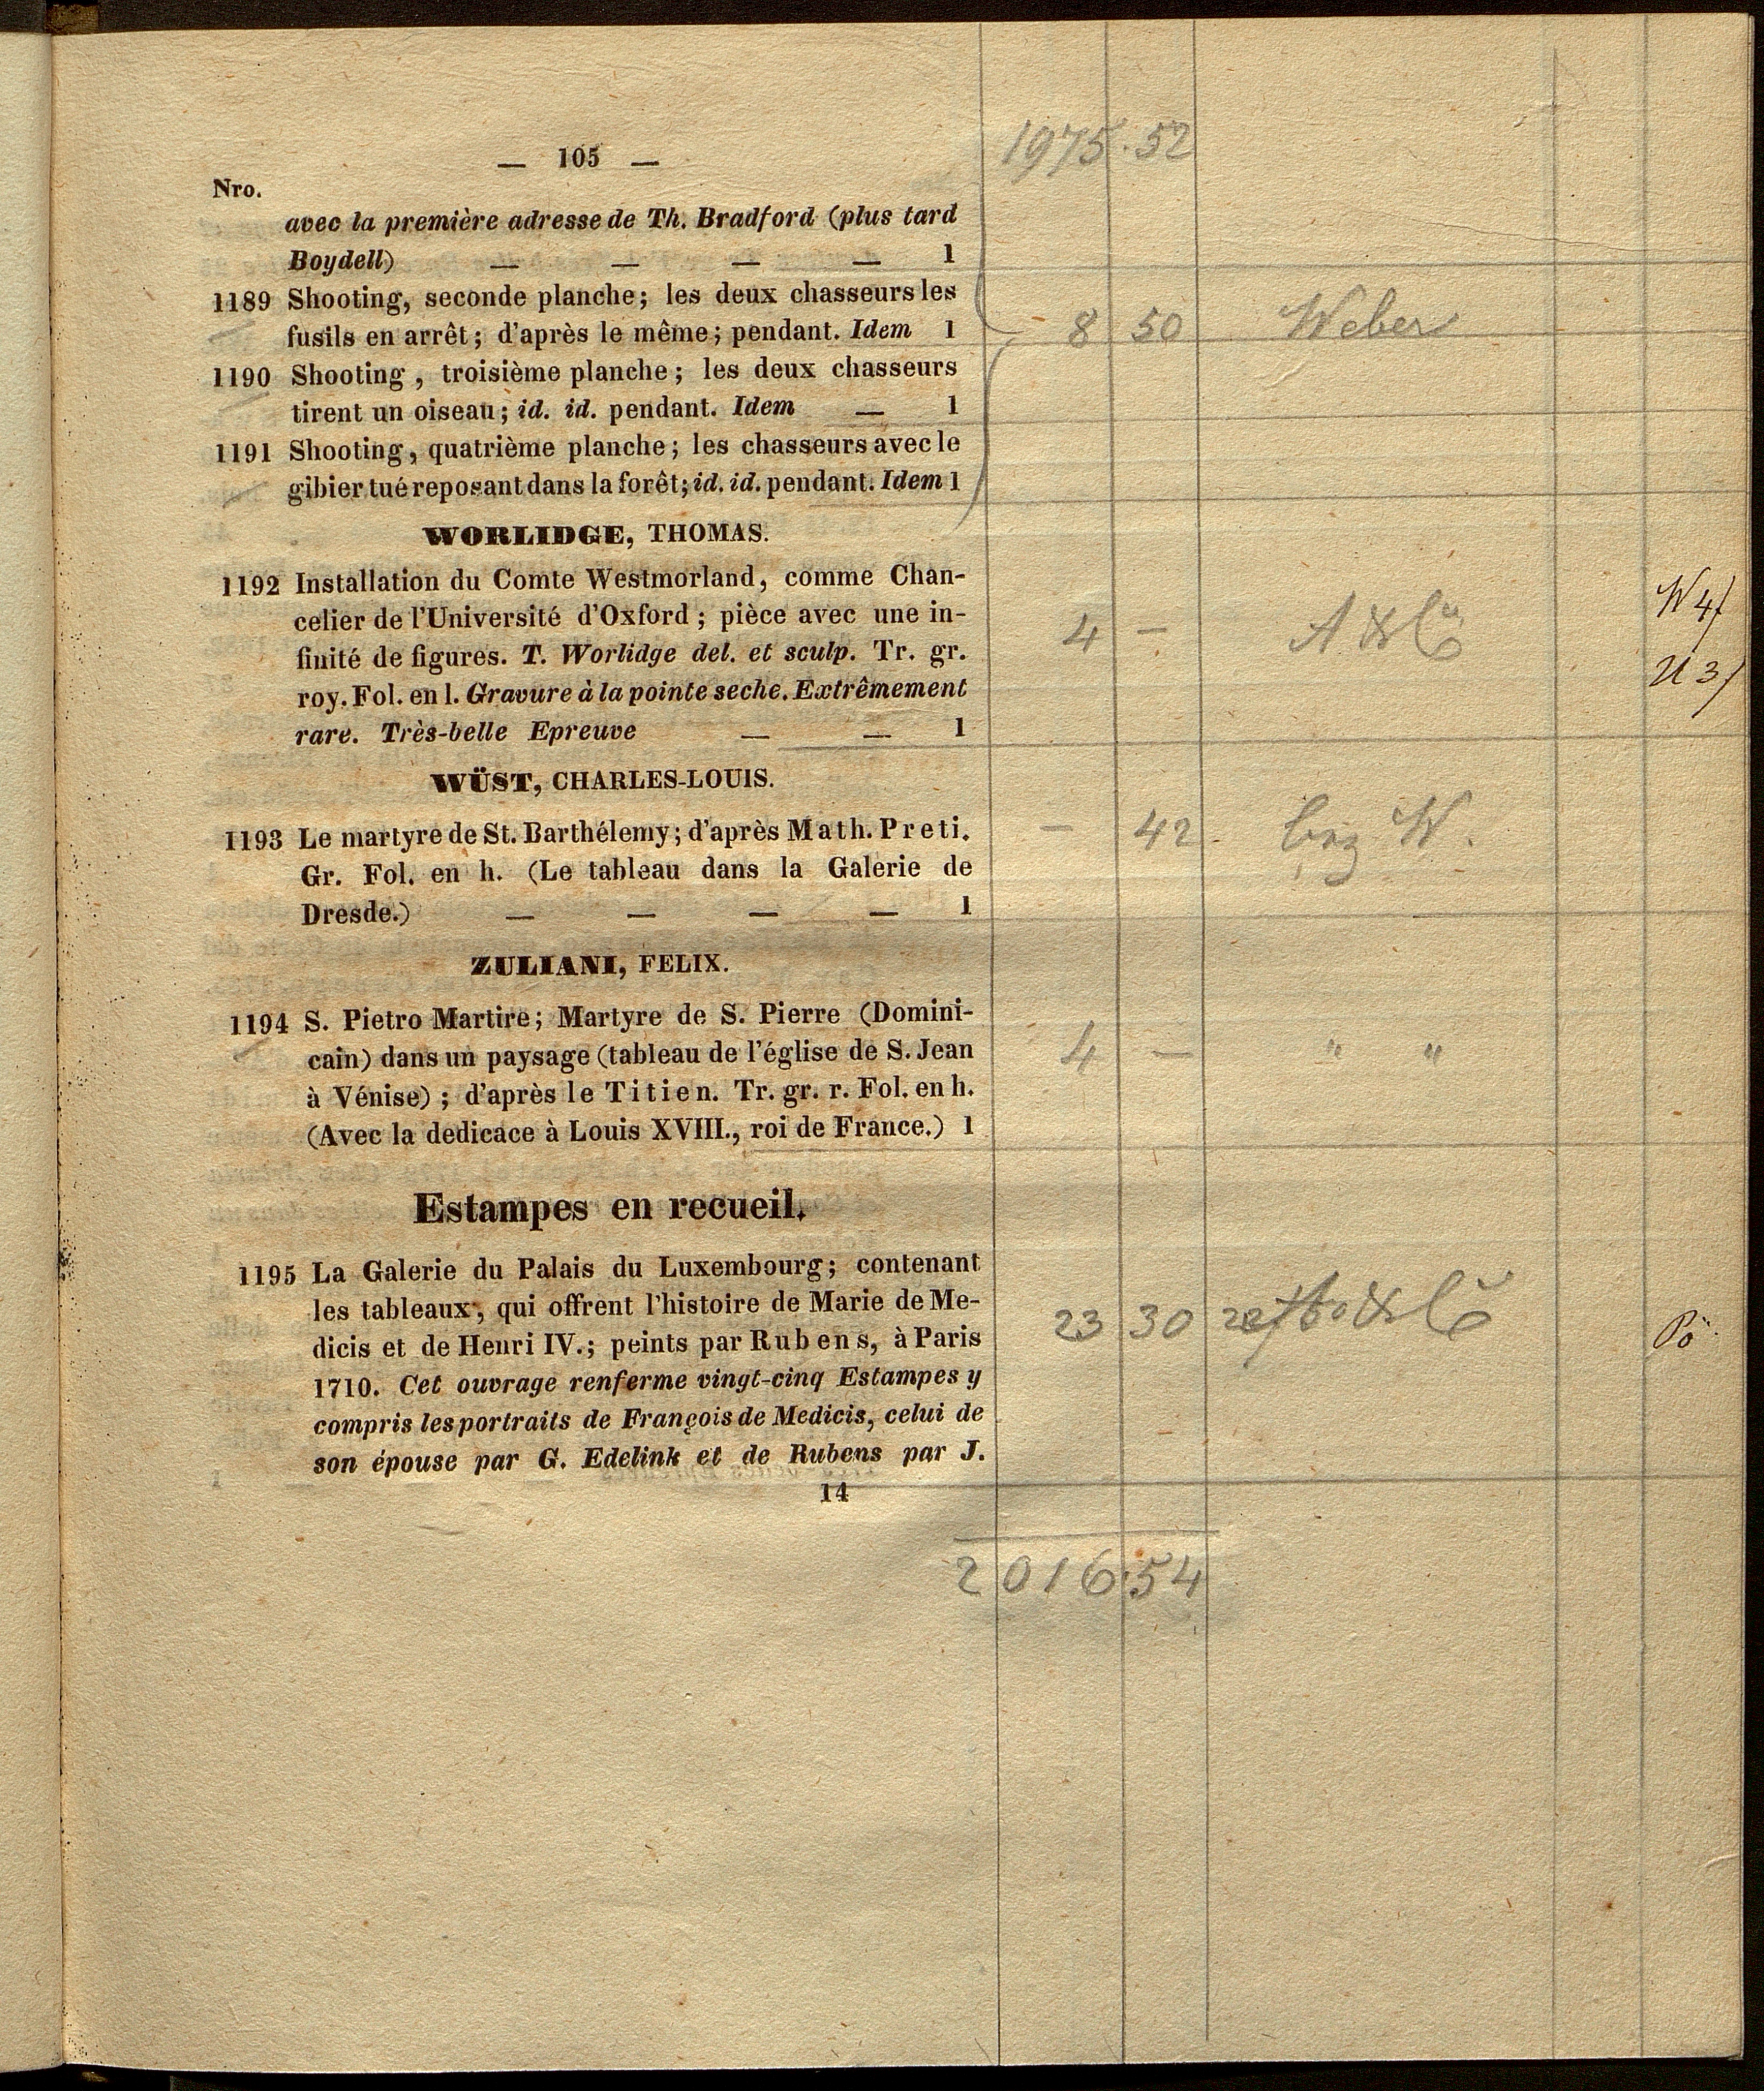 1975.52
— 105 —
Nro.
avec la première adresse de Th. Bradford (plus tard
Boydell) — — — — 1
1189 Shooting, seconde planche; les deux chasseurs les
fusils en arrêt; d'après le même; pendant. Idem 1
8 50 Weber
1190 Shooting, troisième planche; les deux chasseurs
tirent un oiseau; id. id. pendant. Idem — 1
1191 Shooting, quatrième planche; les chasseurs avec le
gibier tué reposant dans la forêt; id. id. pendant. Idem 1
WORLIDGE, THOMAS.
1192 Installation du Comte Westmorland, comme Chan-
celier de l'Université d'Oxford; pièce avec une in-
finité de figures. T. Worlidge del. et sculp. Tr. gr.
roy. Fol. en l. Gravure à la pointe seche. Extrêmement
rare. Très-belle Epreuve — — 1
4 —
W 4/
U 3/
WÜST, CHARLES-LOUIS.
1193 Le martyre de St. Barthélemy; d'après Math. Preti.
Gr. Fol. en h. (Le tableau dans la Galerie de
Dresde.) — — — — 1
— 42 W.
ZULIANI, FELIX.
1194 S. Pietro Martire; Martyre de S. Pierre (Domini-
cain) dans un paysage (tableau de l'église de S. Jean
à Vénise); d'après le Titien. Tr. gr. r. Fol. en h.
(Avec la dedicace à Louis XVIII., roi de France.) 1
4 — " "
Estampes en recueil.
1195 La Galerie du Palais du Luxembourg; contenant
les tableaux, qui offrent l'histoire de Marie de Me-
dicis et de Henri IV.; peints par Rubens, à Paris
1710. Cet ouvrage renferme vingt-cinq Estampes y
compris les portraits de François de Medicis, celui de
son épouse par G. Edelink et de Rubens par J.
23 30
14
2016.54